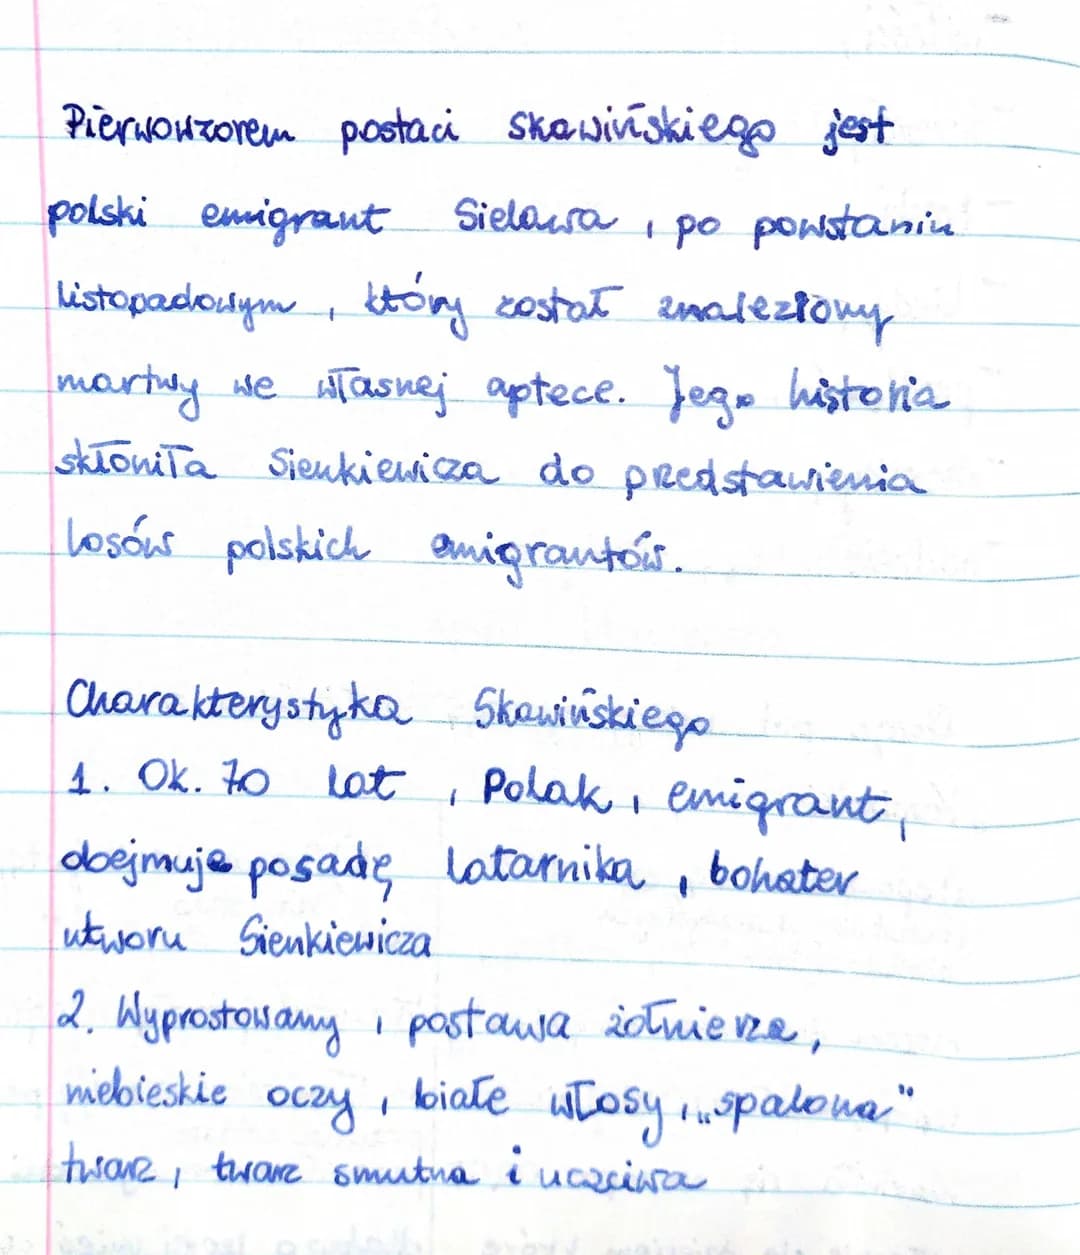 Pierwowzorem postaci Skawińskiego jest
polski emigrant Sielawa, po powstaniu
listopadowym, który został znaleziony
martwy we własnej aptece. Jego historia
skłoniła Sienkiewicza do predstawienia
losów polskich emigrantów.
Charakterystyka Skawińskiego
1. Ok. 70 lat, Polak, emigrant,
obejmuje posadę latarnika, bohater
utworu Sienkiewicza
2. Wyprostowany, postawa żołnierza,
niebieskie oczy, białe włosy, „spalona"
twarz, twarz smutna i uczciwa